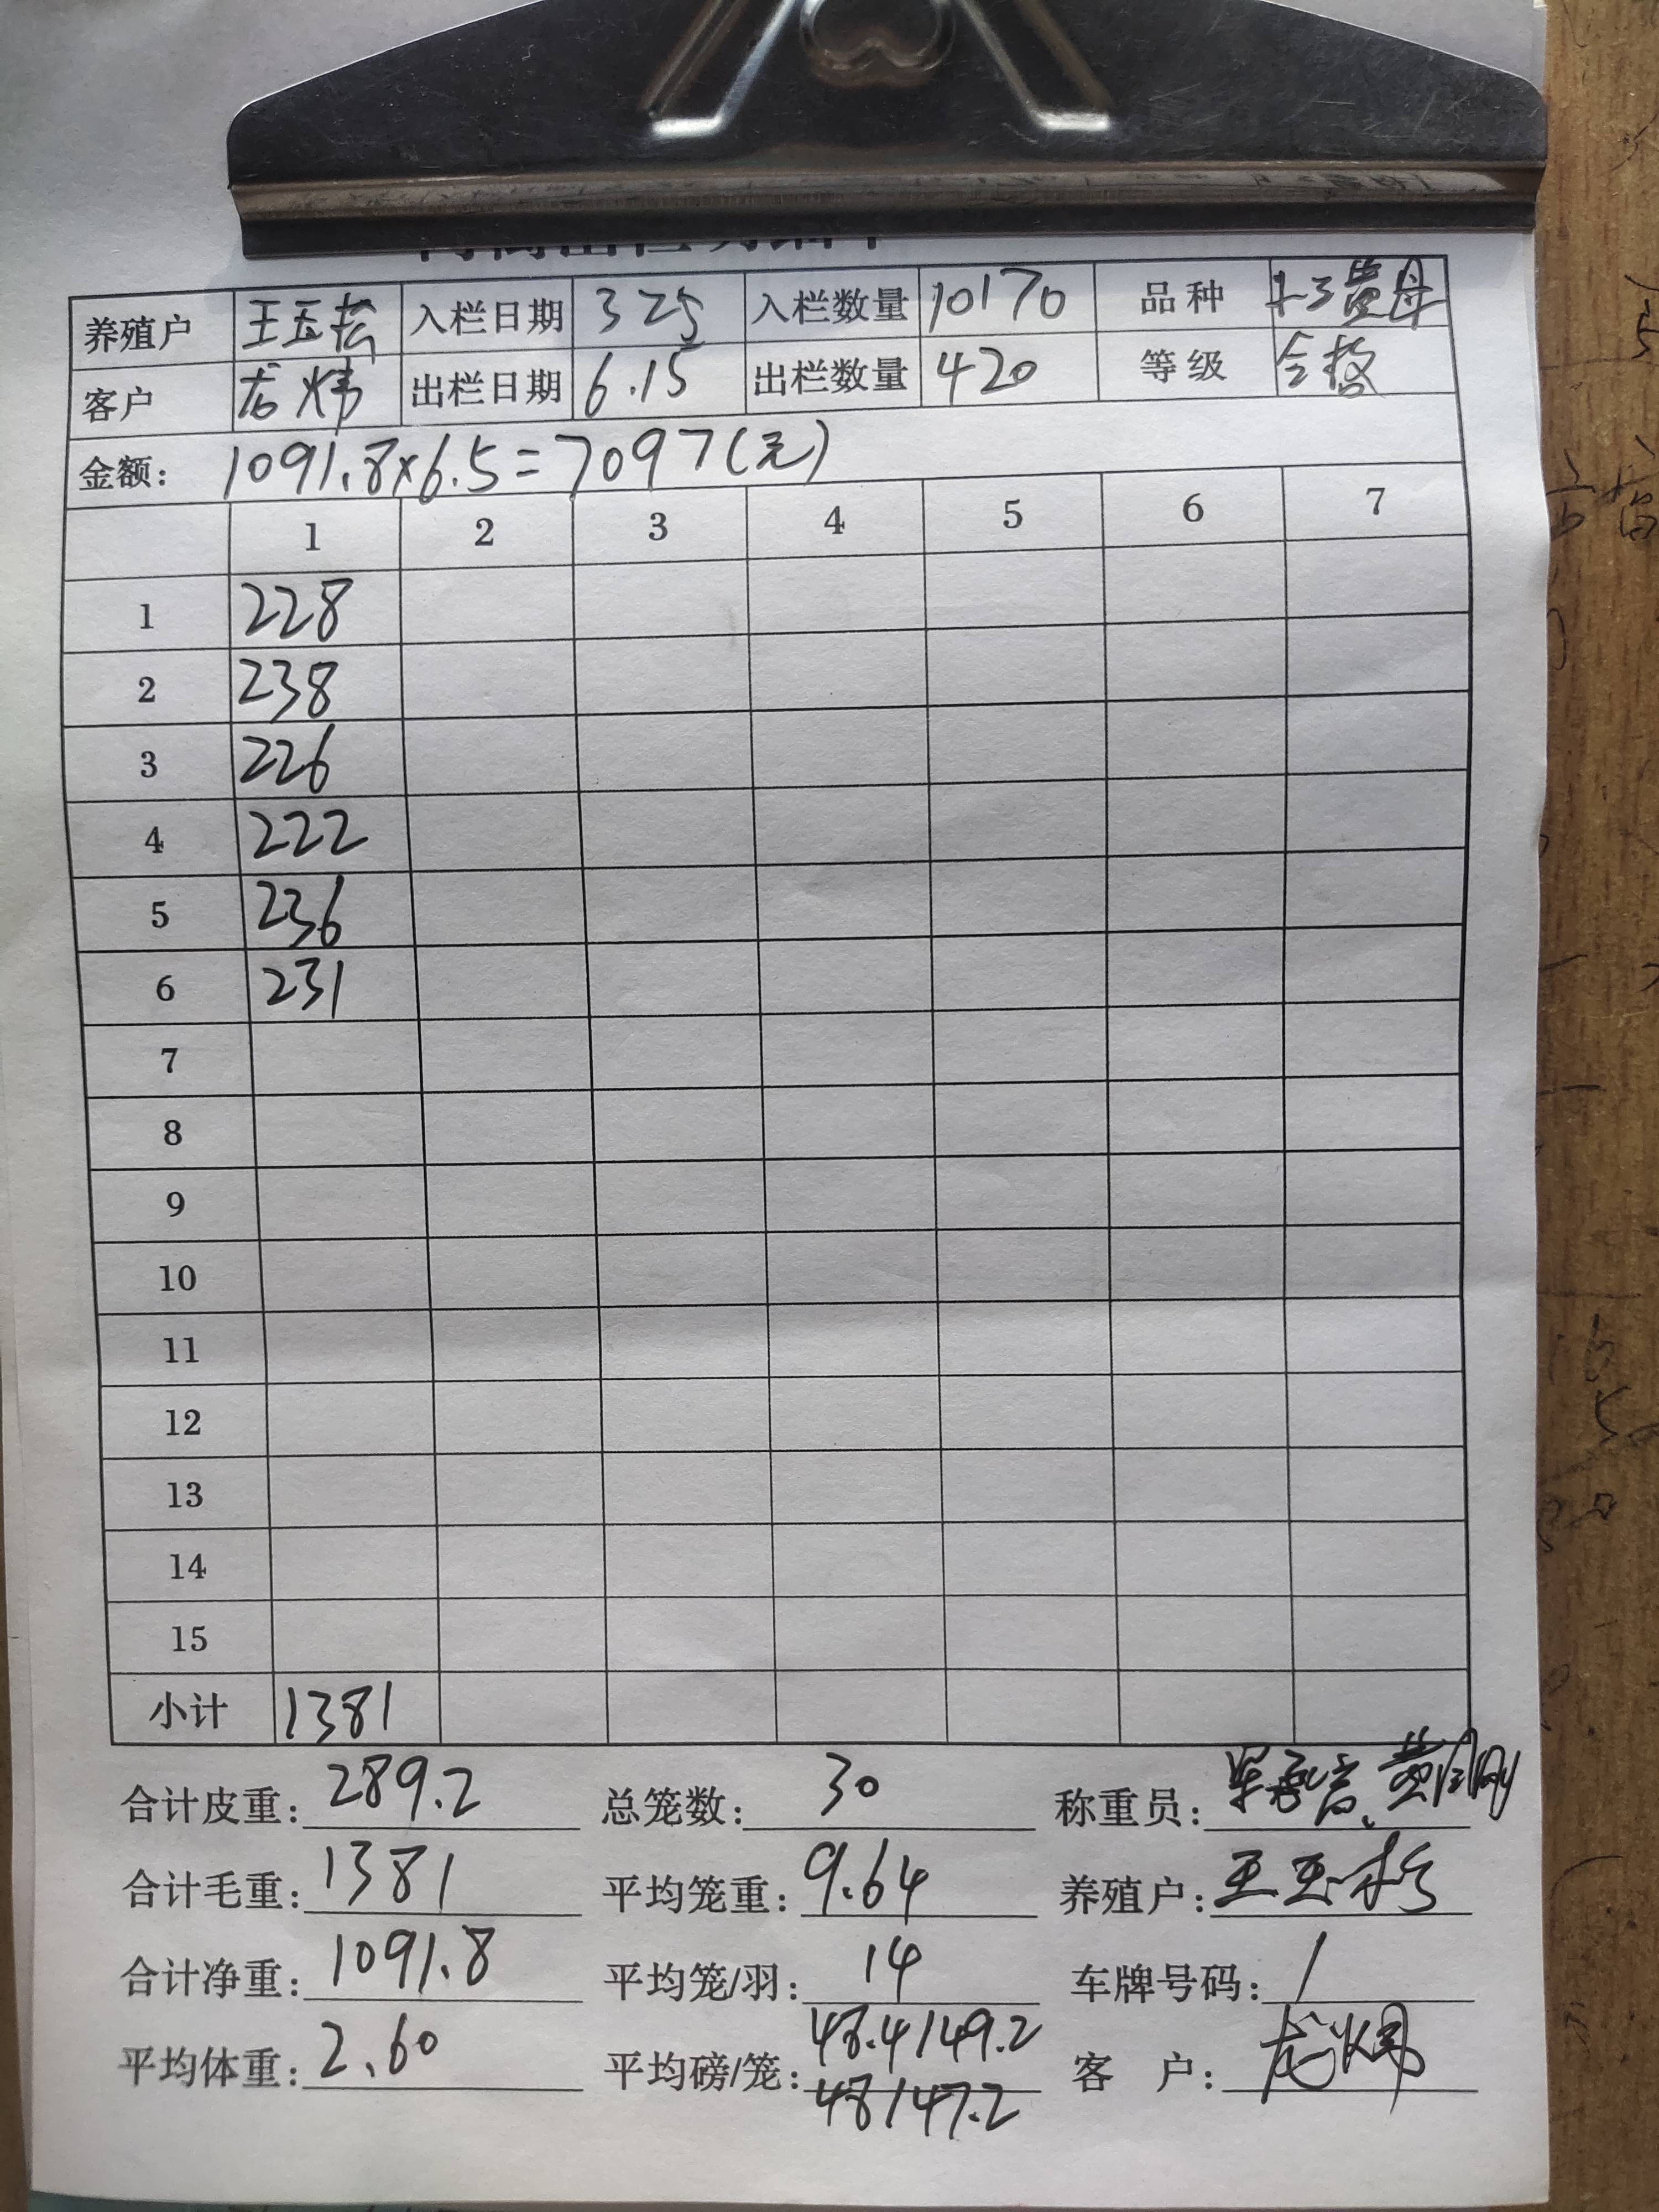 养殖户 王玉 入栏日期 325 入栏数量 10170 品种
客户 龙炜 出栏日期 6.15 出栏数量 420 等级
金额: 1091.8×6.5=7097(元)
1 2 3 4 5 6 7
1 228
2 238
3 226
4 222
5 236
6 231
7
8
9
10
11
12
13
14
15
小计 1381
合计皮重: 289.2 总笼数: 30 称重员:
合计毛重: 1381 平均笼重: 9.64 养殖户: 王玉
合计净重: 1091.8 平均笼/羽: 14 车牌号码: /
平均体重: 2.60 平均磅/笼: 48.4/49.2 客 户: 龙炜
48/47.2